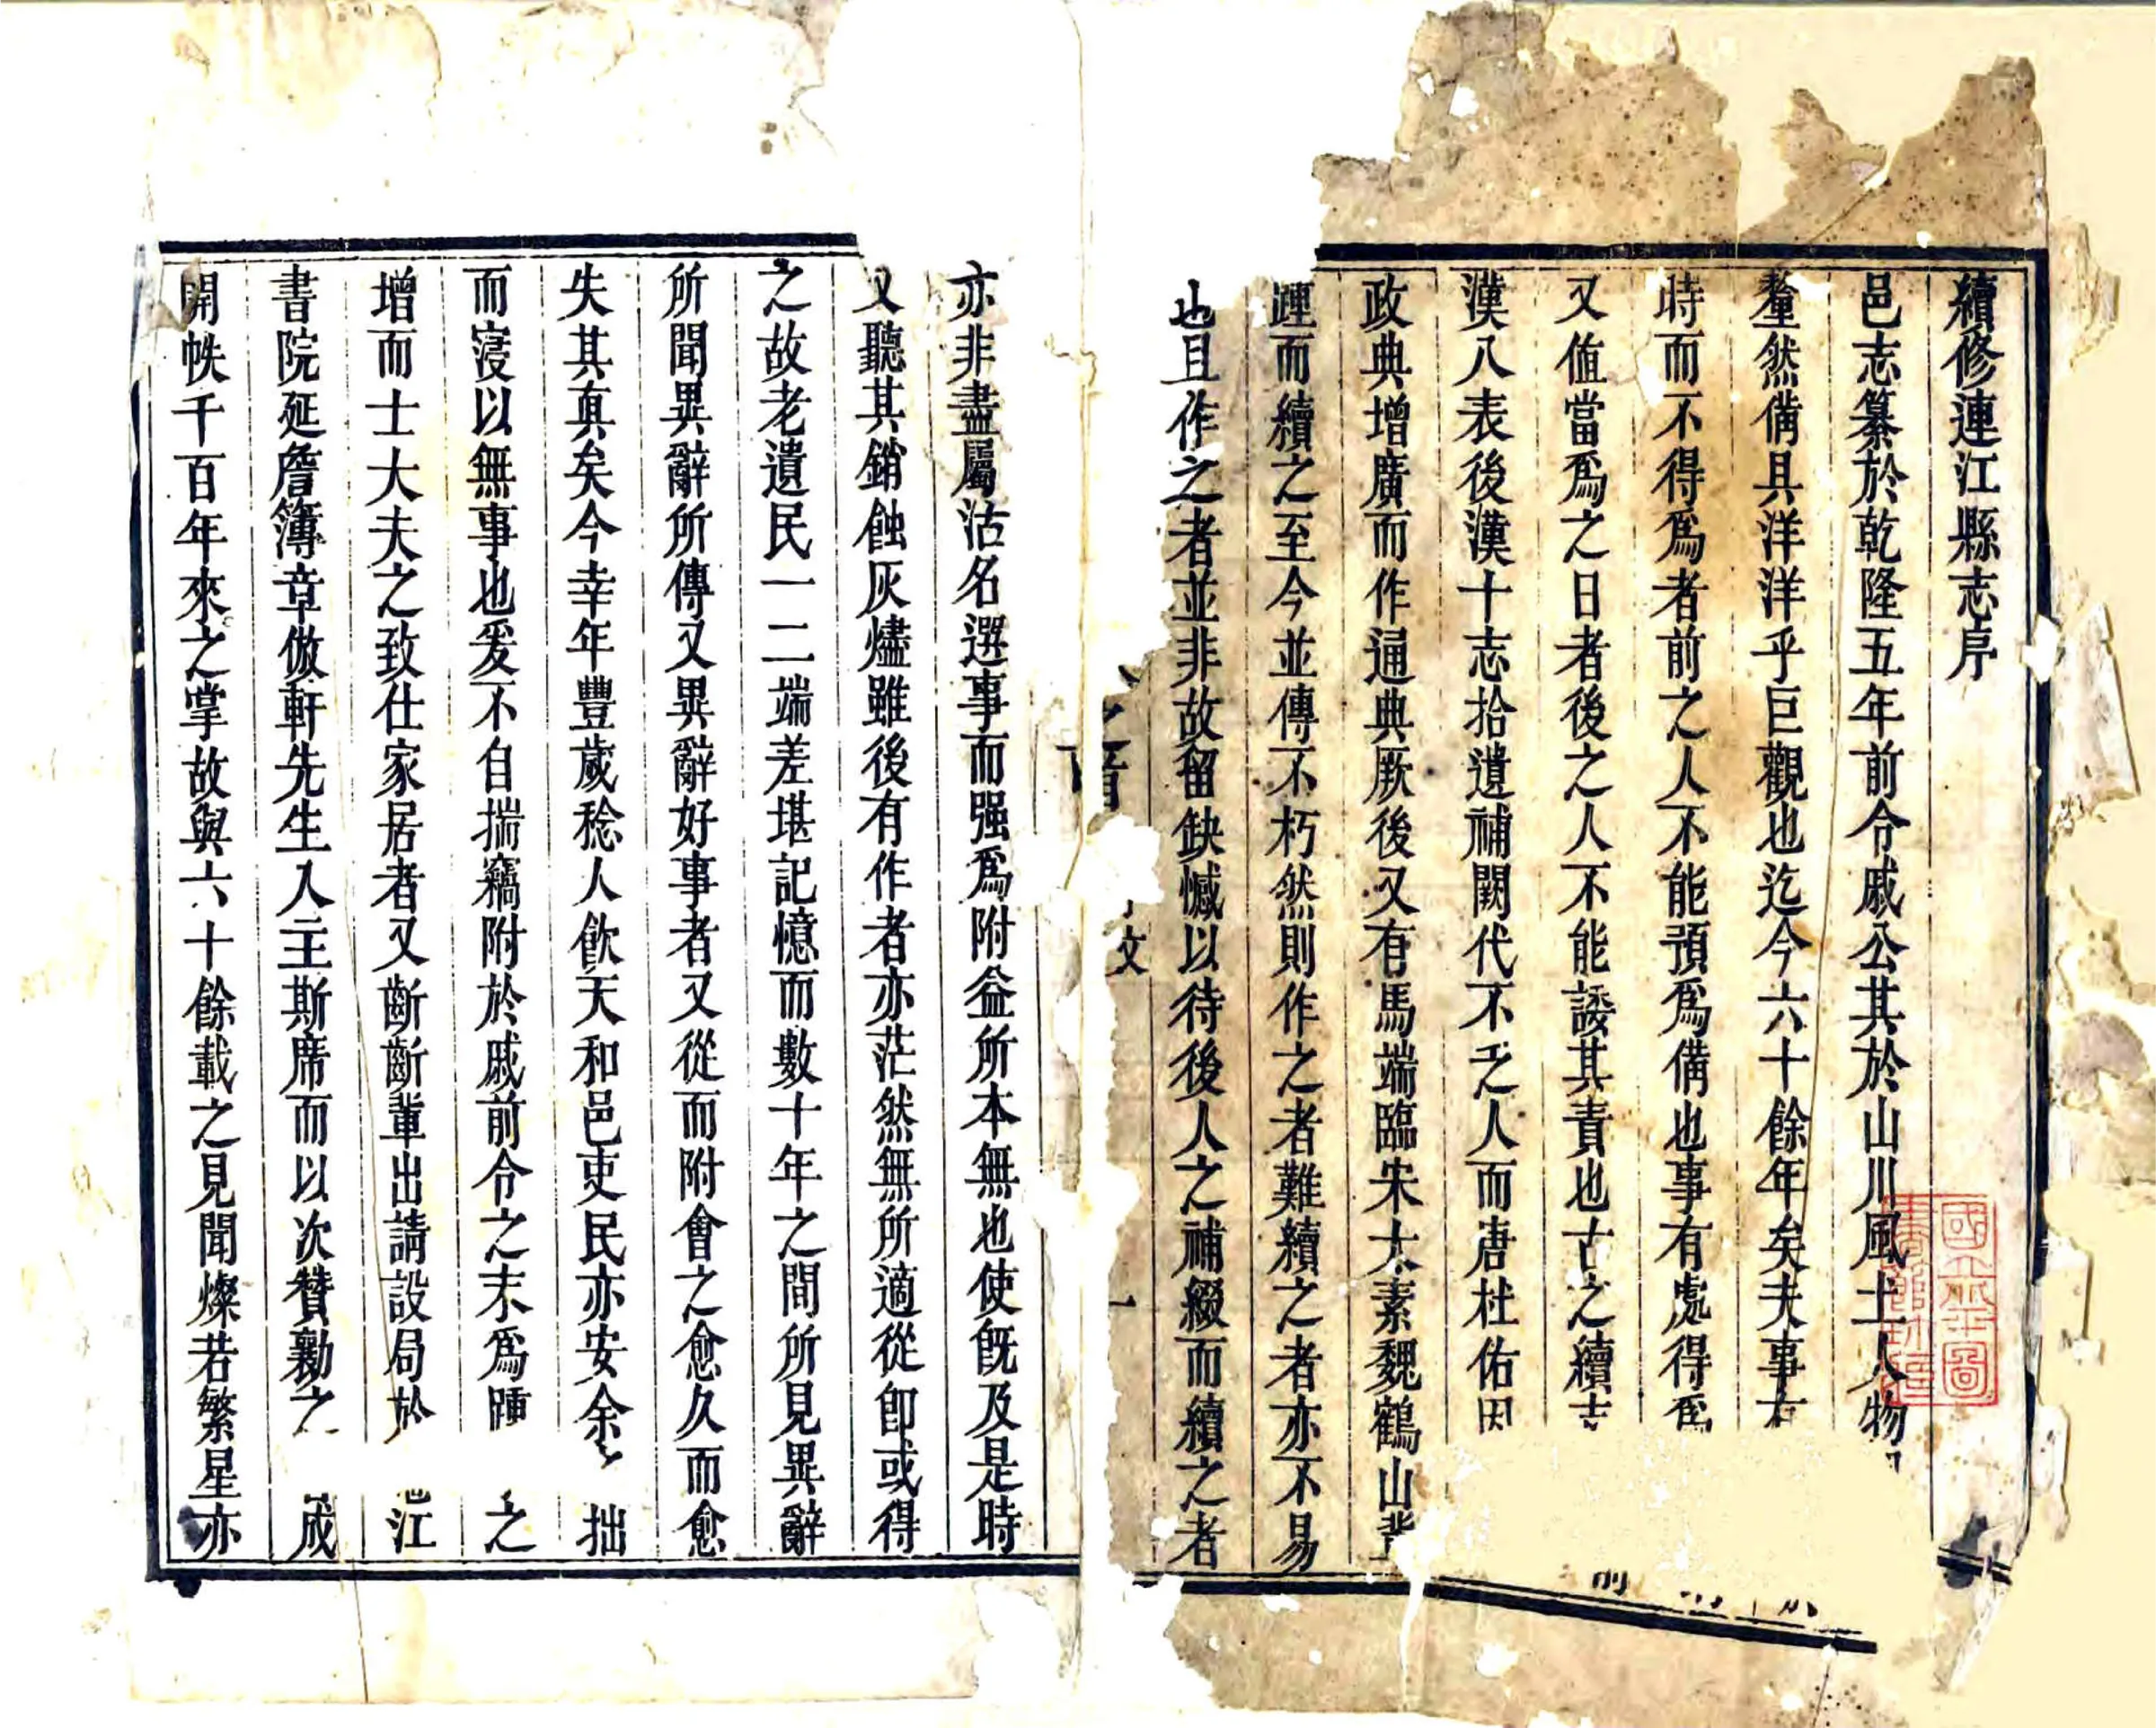 續修連江縣志序
邑志纂於乾隆五年前令戚公其於山川風土人物
釐然備具洋洋乎巨觀也迄今六十餘年矣夫事有
時而不得爲者前之人不能預爲備也事有處得爲
又值當爲之日者後之人不能諉其責也古之續志
漢八表後漢十志拾遺補闕代不乏人而唐杜佑因
政典增廣而作通典厥後又有馬端臨宋太素魏鶴山輩
踵而續之至今並傳不朽然則作之者難續之者亦不易
也且作之者並非故留缺憾以待後人之補綴而續之者
亦非盡屬沽名選事而强爲附益所本無也使既及是時
又聽其銷蝕灰燼雖後有作者亦茫然無所適從卽或得
之故老遺民一二端差堪記憶而數十年之間所見異辭
所聞異辭所傳又異辭好事者又從而附會之愈久而愈
失其真矣今幸年豐歲稔人飮天和邑吏民亦安余 拙
而寖以無事也爰不自揣竊附於戚前令之末爲踵 之
增而士大夫之致仕家居者又齗齗輩出請設局於 江
書院延詹簿章倣軒先生入主斯席而以次贊勷之 成
開帙千百年來之掌故與六十餘載之見聞燦若繁星亦